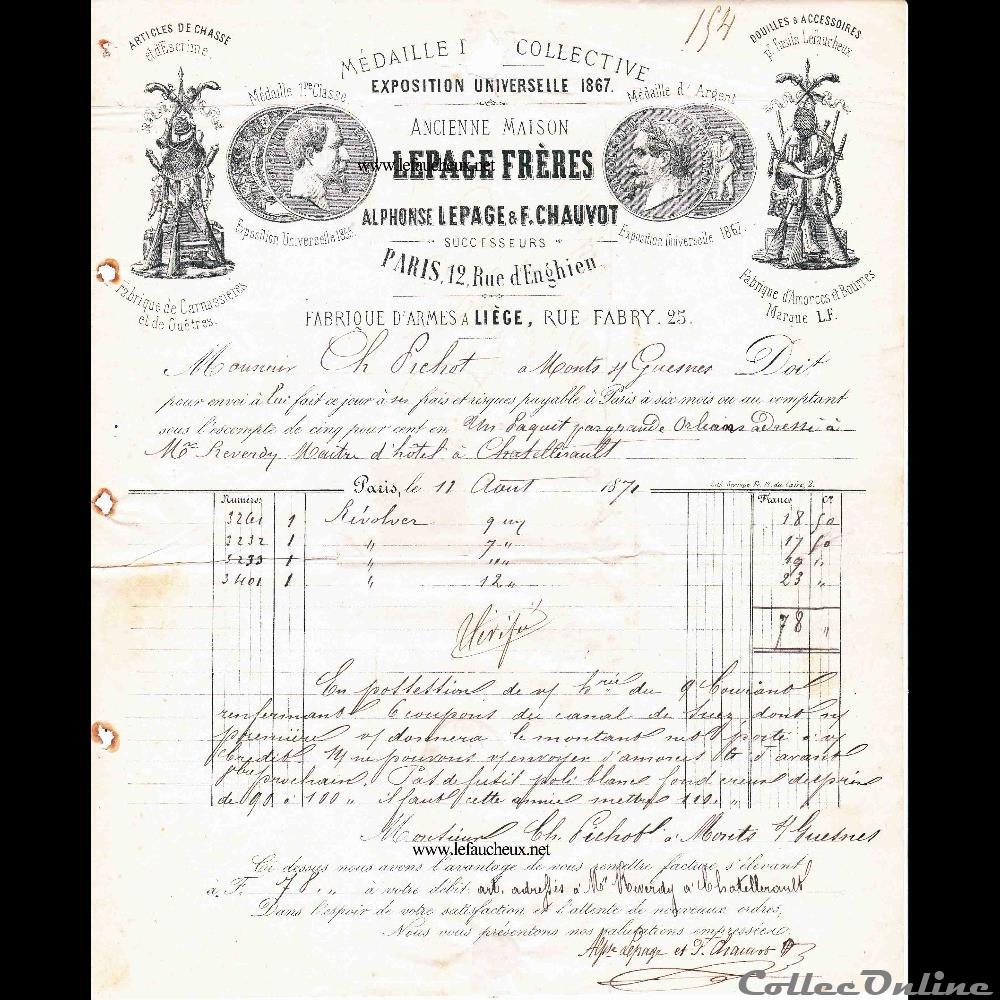 154
ARTICLES DE CHASSE
et d'Escrime.
DOUILLES & ACCESSOIRES
pr. fusils Lefaucheux
MÉDAILLE COLLECTIVE
EXPOSITION UNIVERSELLE 1867.
Médaille 1re Classe
Médaille d'Argent
ANCIENNE MAISON
www.lefaucheux.net
LEPAGE FRÈRES
ALPHONSE LEPAGE & F. CHAUVOT
Exposition Universelle 1855.
Exposition universelle 1867.
SUCCESSEURS
PARIS, 12, Rue d'Enghien
Fabrique de Carnassières
et de Guêtres.
Fabrique d'Amorces et Bourres
Marque L.F.
FABRIQUE D'ARMES A LIÈGE, RUE FABRY. 25.
Monsieur Ch Pichot à Monts s/ Guesnes Doit
pour envoi à lui fait ce jour à ses frais et risques payable à Paris à six mois ou au comptant
sous l'escompte de cinq pour cent en Un Paquet par grande Orléans adressé à
Mr Reverdy Maître d'hôtel à Chatellerault
Paris, le 11 Aout 1871
Numéros Francs Ct
3261 1 Révolver 9 18 50
3232 1 " 7 " 17 50
3233 1 " " " 19 "
3401 1 " 12 " 23 "
78 "
Vérifié
En possession de v/ h'rée du 9 Courant
renfermant 6 coupons du canal de Suez dont n/
première v/ donnera le montant net porté à v/
Crédit. N/ ne pouvons v/ envoyer d'amorces avant
prochain. Pas de fusil poli blanc fond creux de prix
de 90 à 100 " il faut cette année mettre 120 "
Monsieur Ch. Pichot à Monts s/ Guesnes
www.lefaucheux.net
Ci dessus nous avons l'avantage de vous remettre facture s'élevant
à F. 78 " à votre débit art. adressés à Mr Reverdy à Chatellerault
Dans l'espoir de votre satisfaction et l'attente de nouveaux ordres,
Nous vous présentons nos salutations empressées.
Alphse Lepage et F. Chauvot
CollecOnline